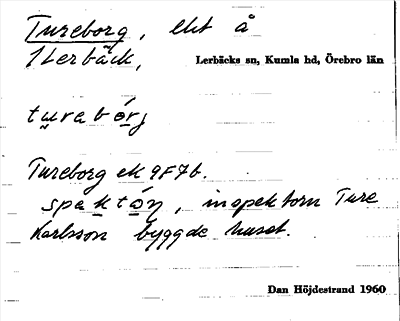 Tureborg, elit å
1 Lerbäck,
Lerbäcks sn, Kumla hd, Örebro län
turebórj
Tureborg ek 9F7b.
spektó̱n, inspektorn Ture
Karlsson byggde huset.
Dan Höjdestrand 1960